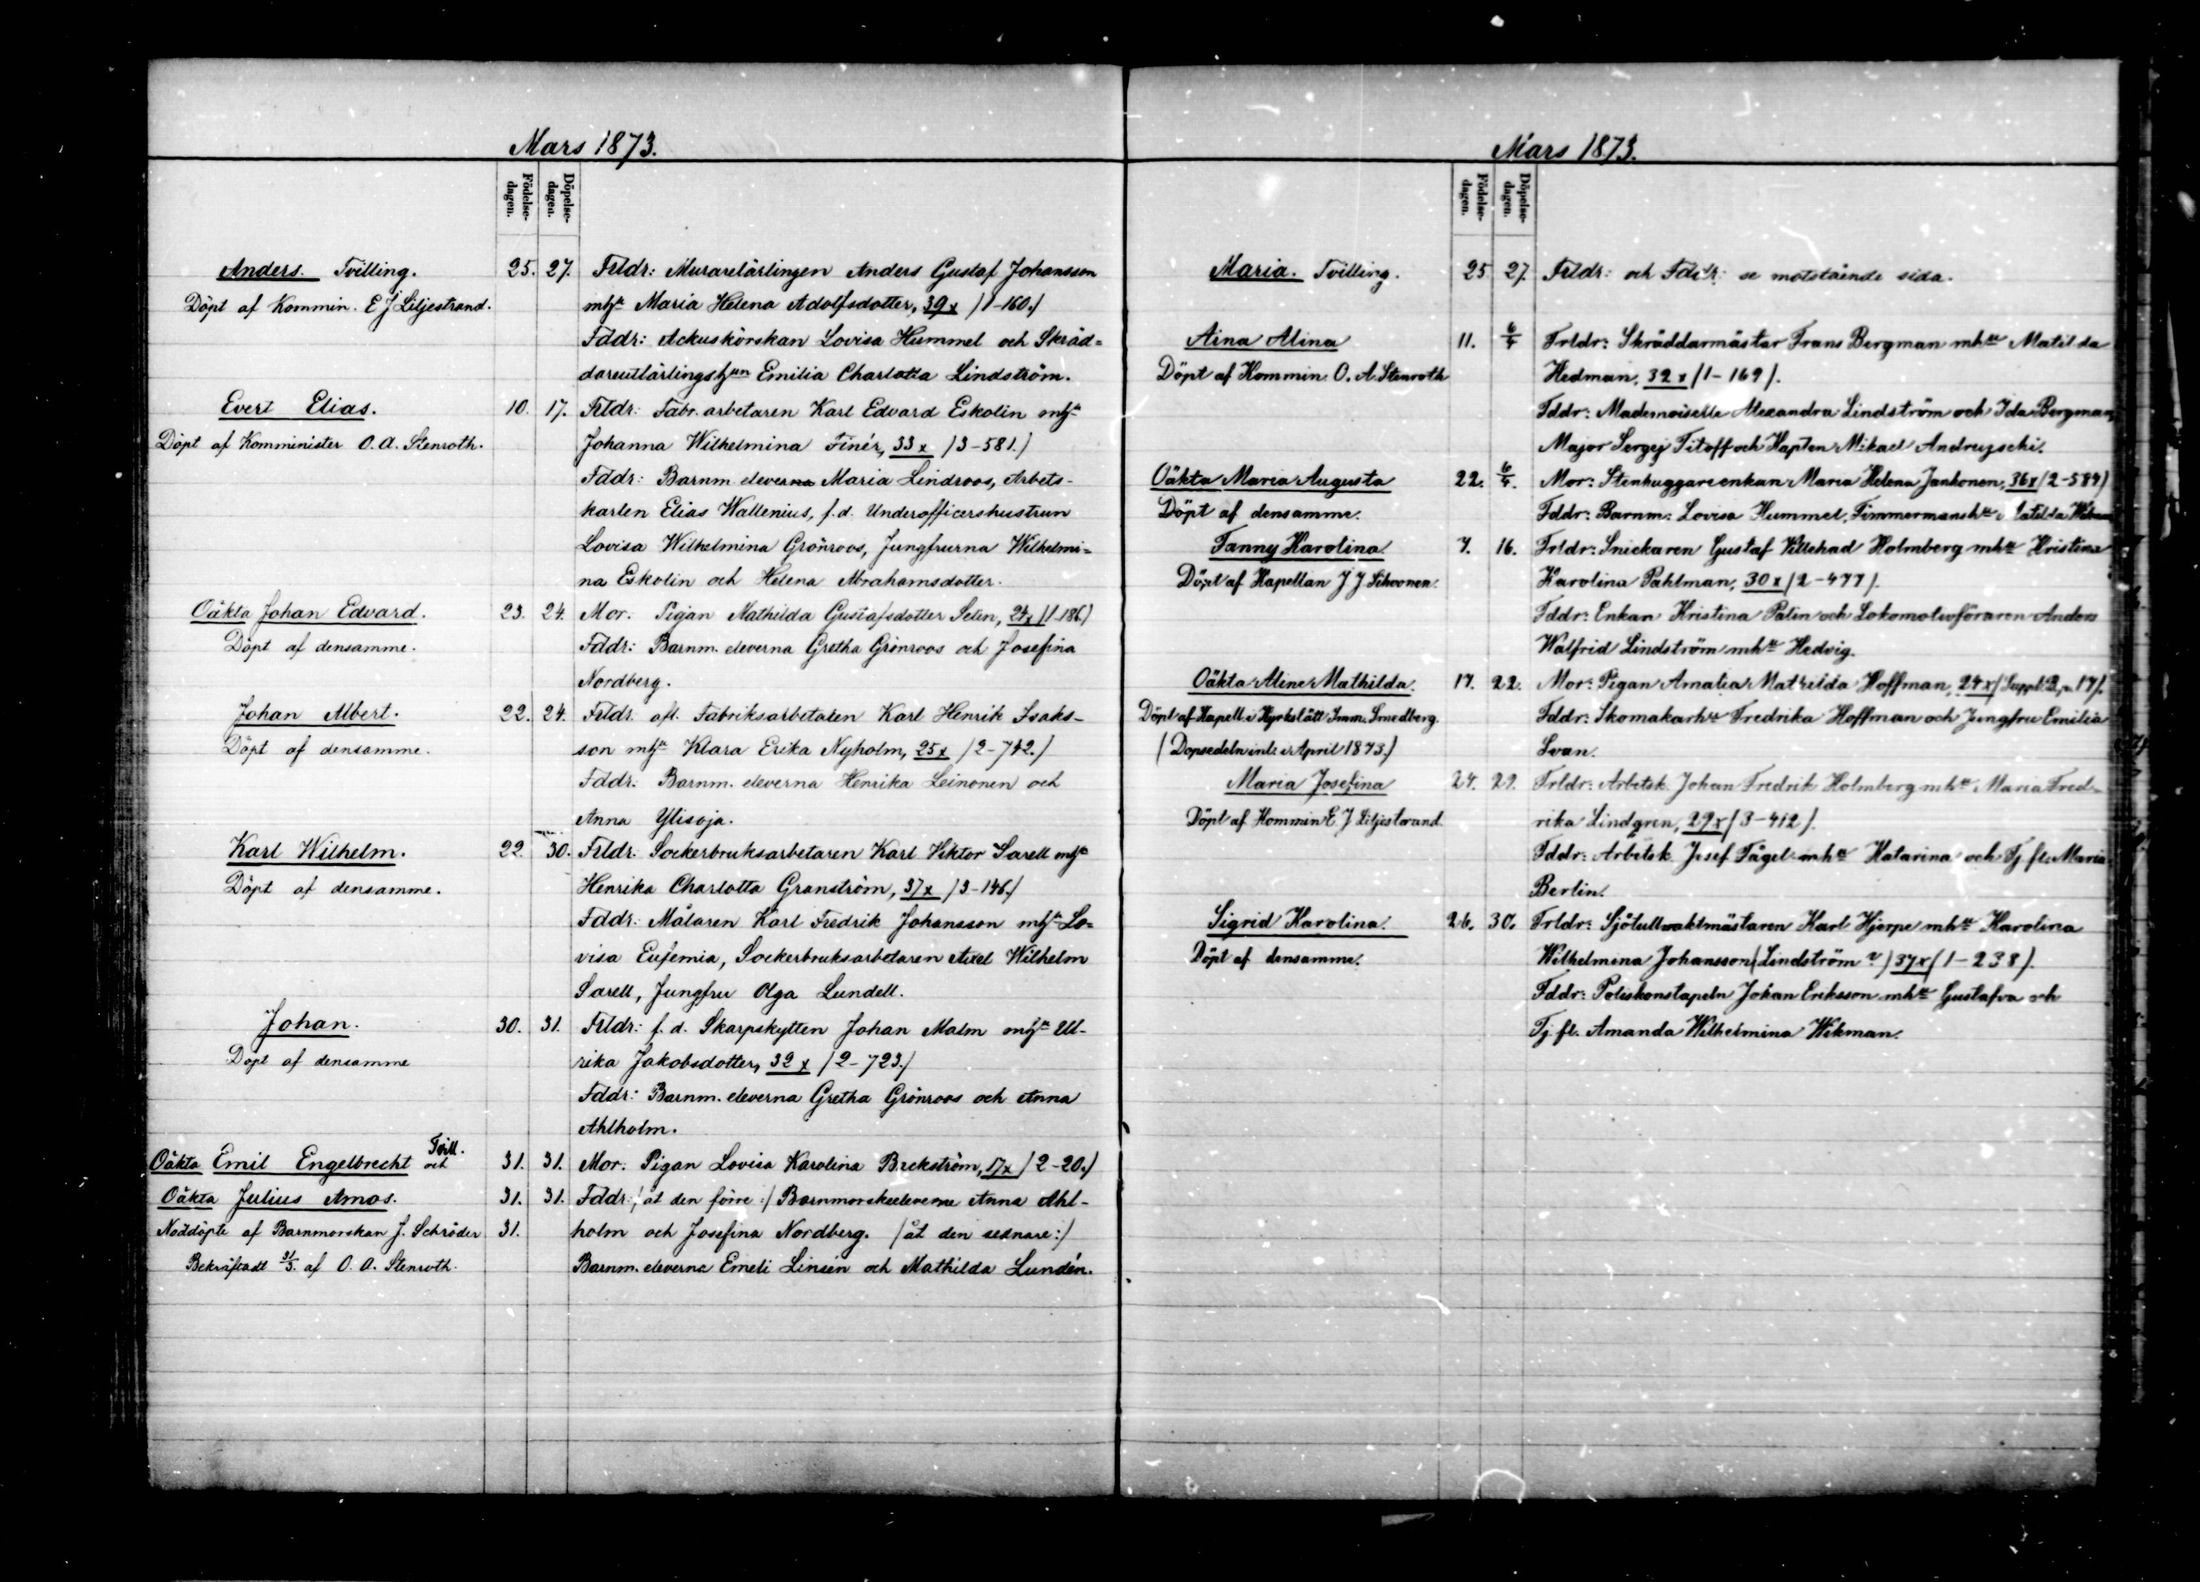 Mars 1873.
Födelse-
dagen.
Döpelse-
dagen.
Anders. Tvilling. 25. 27. Frldr: Murarelärlingen Anders Gustaf Johansson
Döpt af Kommin. E J Liljestrand. mhu Maria Helena Adolfsdotter, 39x /1-160./
Fddr: Ackuskörskan Lovisa Hummel och Skräd=
darentlärlingshun Emilia Charlotta Lindström.
Evert Elias. 10. 17. Frldr: Fabr. arbetaren Karl Edvard Eskolin mhu
Döpt af Komminister O. A. Stenroth. Johanna Wilhelmina Finér, 33x /3-581./
Fddr: Barnm. eleverna Maria Lindroos, Arbets-
karlen Elias Wallenius, f.d. Underofficershustrun
Lovisa Wilhelmina Grönroos, Jungfrurna Wilhelmi=
na Eskolin och Helena Abrahamsdotter.
Oäkta Johan Edvard. 23. 24. Mor: Pigan Mathilda Gustafsdotter Selin, 24x /1-186/
Döpt af densamme. Fddr: Barnm. eleverna Gretha Grönroos och Josefina
Nordberg.
Johan Albert. 22. 24. Frldr: afl. Fabriksarbetaren Karl Henrik Isaks-
Döpt af densamme. son mhu Klara Erika Nyholm, 25x /2-742./
Fddr: Barnm. eleverna Henrika Leinonen och
Anna Ylisoja.
Karl Wilhelm. 22. 30. Frldr: Sockerbruksarbetaren Karl Viktor Sarell mhu
Döpt af densamme. Henrika Charlotta Granström, 37x /3-146./
Fddr: Målaren Karl Fredrik Johansson mhu Lo=
visa Eufemia, Sockerbruksarbetaren Axel Wilhelm
Sarell, Jungfru Olga Lundell.
Johan. 30. 31. Frldr: f.d. Skarpskytten Johan Malm mhu Ul-
Döpt af densamme rika Jakobsdotter, 32x /2-723./
Fddr: Barnm. eleverna Gretha Grönroos och Anna
Ahlholm.
Oäkta Emil Engelbrecht Tvill. och 31. 31. Mor: Pigan Lovisa Karolina Beckström, 17x /2-20./
Oäkta Julius Amos. 31. 31. Fddr: /åt den förre:/ Barnmorskeeleverne Anna Ahl-
Nöddöpte af Barnmorskan J. Schröder 31. holm och Josefina Nordberg. /åt den sednare:/
Bekräftadt 31/3. af O. A. Stenroth. Barnm. eleverna Emeli Linsén och Mathilda Lundén.
Mars 1873.
Födelse-
dagen.
Döpelse-
dagen.
Maria. Tvilling. 25 27. Frldr: och Fddr: se motstående sida.
Aina Alina 11. 6/4 Frldr: Skräddarmästar Frans Bergman mhu Matilda
Döpt af Kommin. O. A. Stenroth Hedman, 32x /1-169/.
Fddr: Mademoiselle Alexandra Lindström och Ida Bergman,
Major Sergej Titoff och Kapten Mikael Andreyschi.
Oäkta Maria Augusta 22. 6/4. Mor: Stenhuggareenkan Maria Helena Jankonen, 36x /2-584/
Döpt af densamme. Fddr: Barnm: Lovisa Hummel, Timmermanshu
Fanny Karolina. 7. 16. Frldr: Snickaren Gustaf Villehad Holmberg mhu Kristina
Döpt af Kapellan J J Sihvonen. Karolina Pahlman, 30x /2-477/.
Fddr: Enkan Kristina Palin och Lokomotivföraren Anders
Walfrid Lindström mhu Hedvig.
Oäkta Aline Mathilda. 17. 22. Mor: Pigan Amalia Mathilda Hoffman, 24x /Suppl. B, p. 17/.
Döpt af Kapell. i Kyrkslätt Imm. Smedberg. Fddr: Skomakarhu Fredrika Hoffman och Jungfru Emilia
/Dopsedeln inl. i April 1873./ Svan.
Maria Josefina 24. 29. Frldr: Arbetsk. Johan Fredrik Holmberg mhu Maria Fred-
Döpt af Kommin E J Liljestrand rika Lindgren, 29x /3-412/.
Fddr: Arbetsk. Josef Tägel mhu Katarina och Tj. fl. Maria
Berlin.
Sigrid Karolina. 26. 30. Frldr: Sjötullvaktmästaren Karl Hjerpe mhu Karolina
Döpt af densamme. Wilhelmina Johansson (Lindström ?) 37x /1-238/.
Fddr: Poliskonstapeln Johan Eriksson mhu Gustafva och
Tj. fl. Amanda Wilhelmina Wikman.